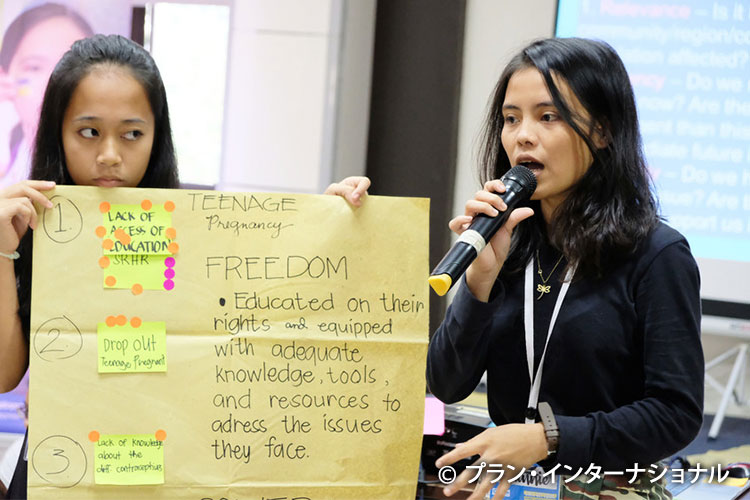 1. Relevance – Is it
mmunity/region/co
tion affected?
ncy – Do we
now? Are the
ment than this
tiate future
Do we h
1.
LACK OF
ACCESS OF
EDUCATION
SRHR
TEENAGE
Pregnancy
FREEDOM
• Educated on their
rights and equipped
with adequate
knowledge, tools,
and resources to
adress the issues
they face.
2.
DROP OUT
Teenage Pregnant
3
Lack of Knowledge
about the
diff contraceptives
POWER
© プラン・インターナショナル